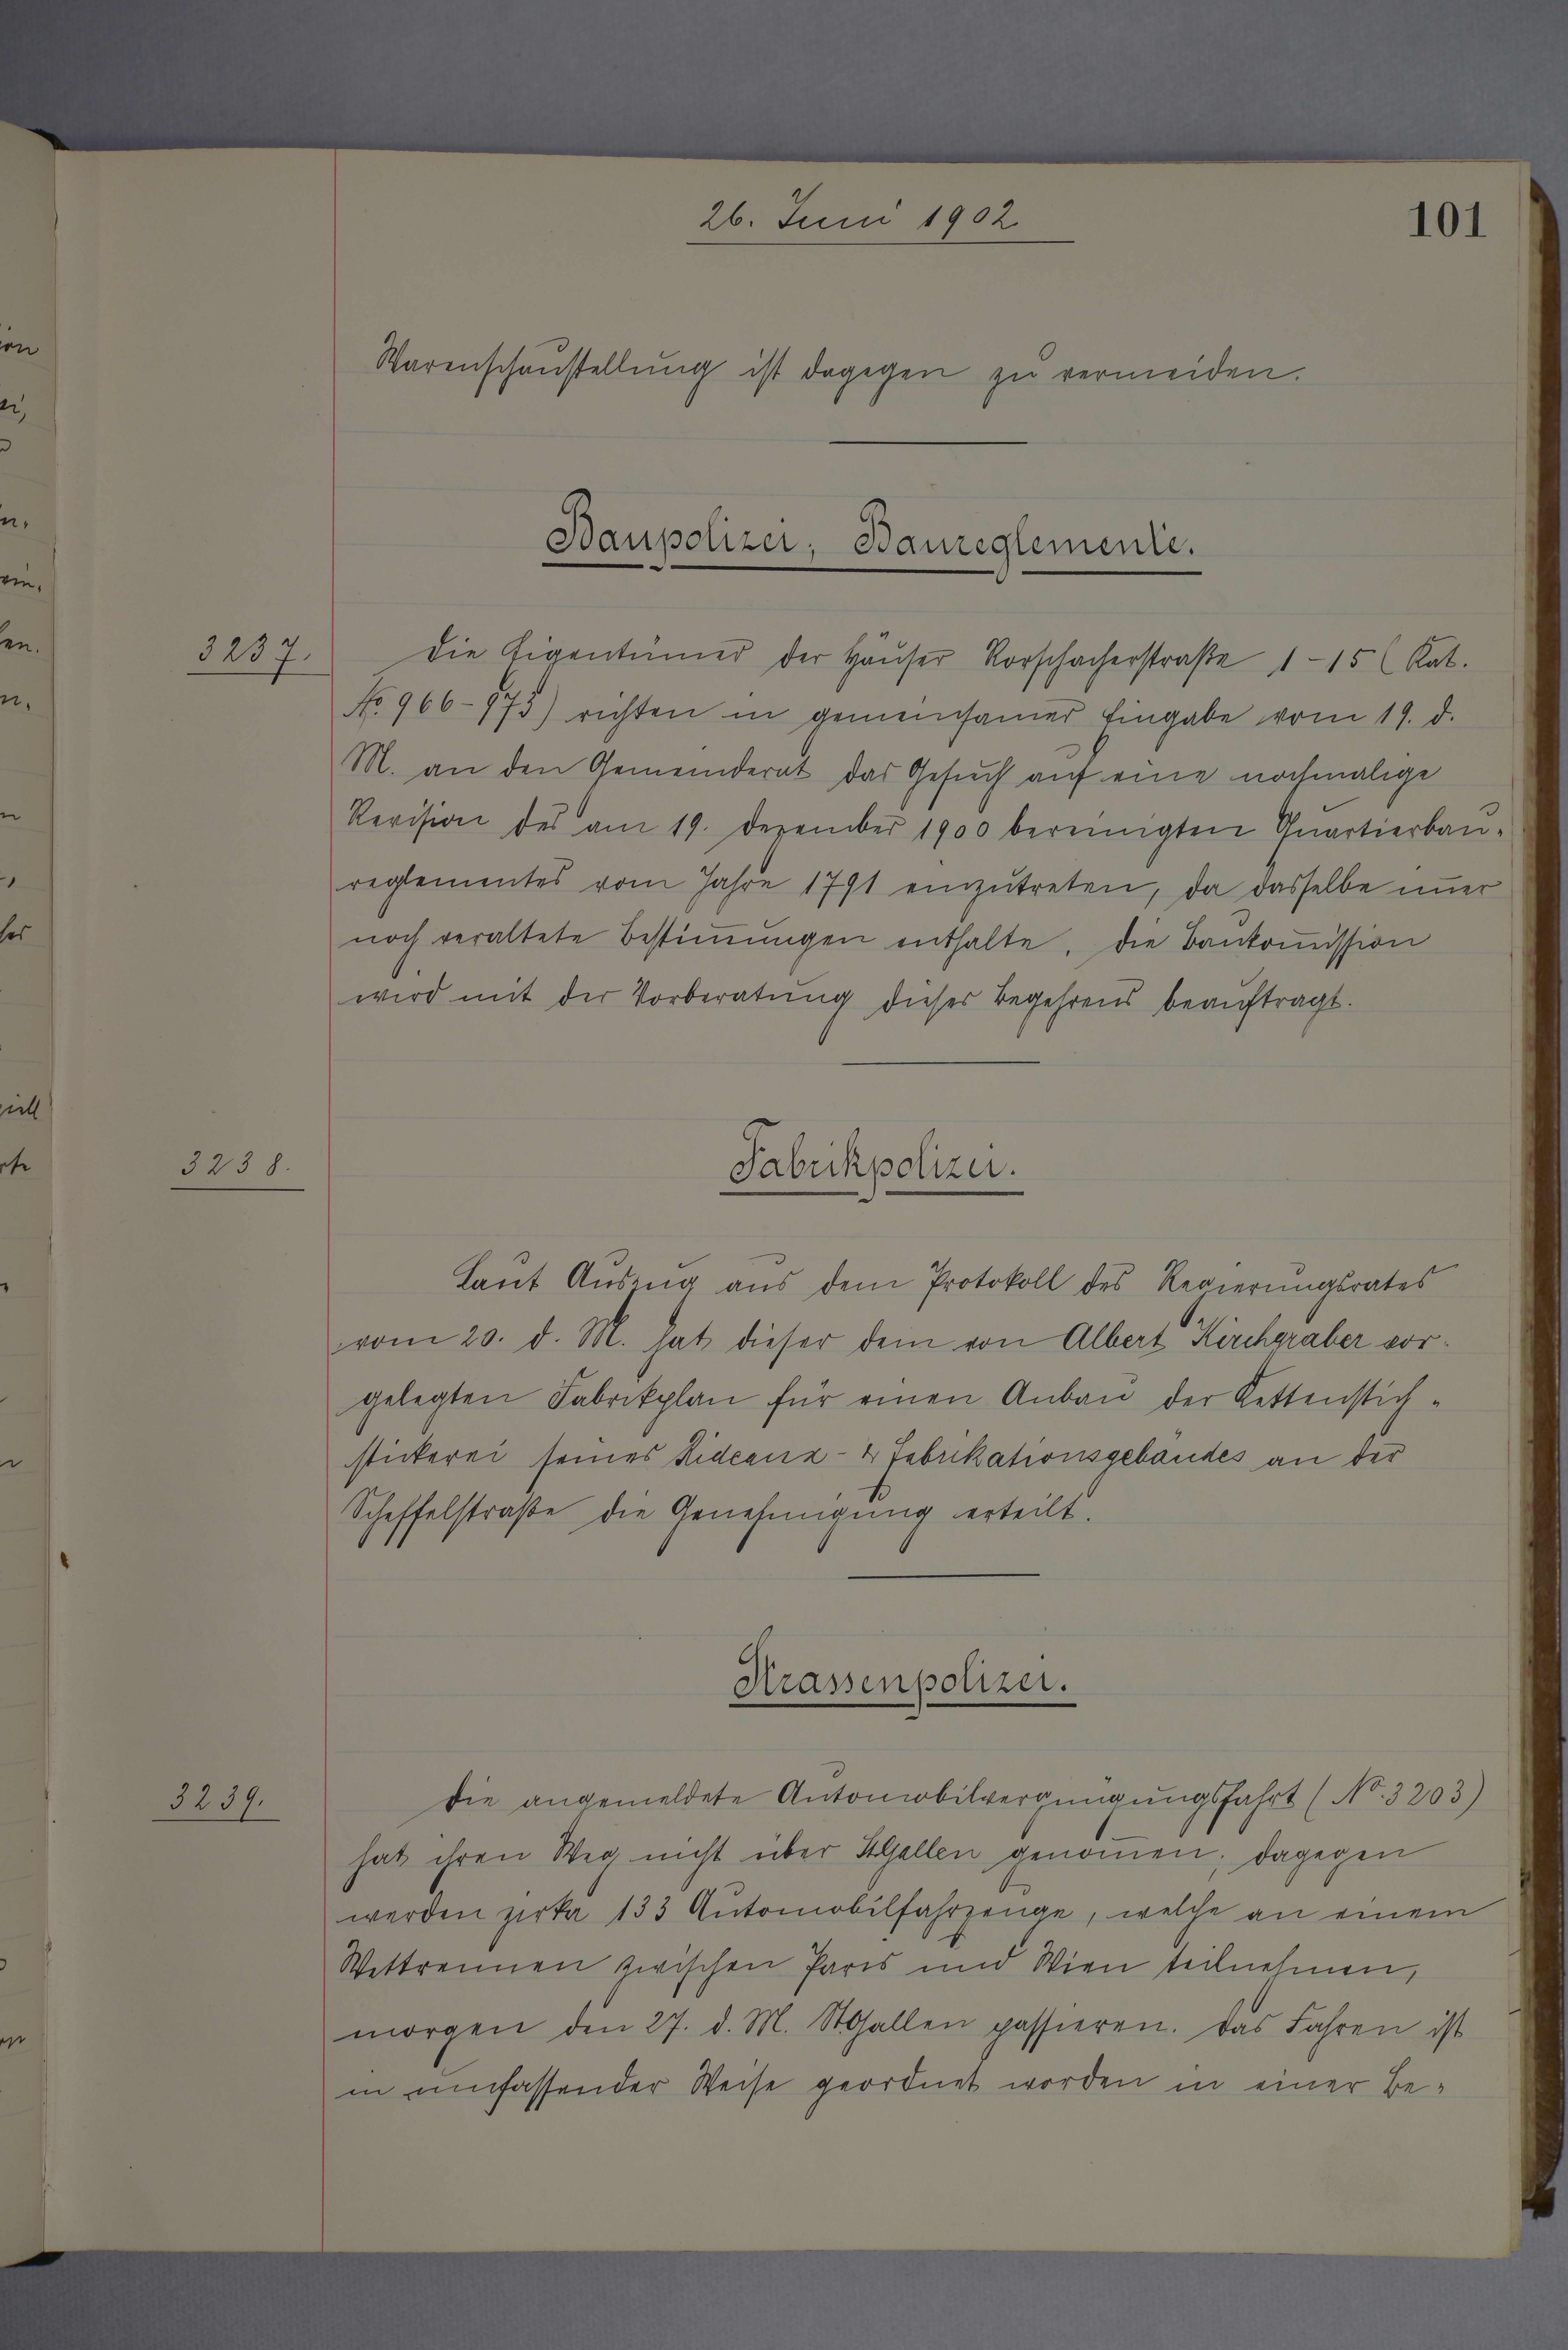 26. Juni 1902
101
Warenschaustellung ist dagegen zu vermeiden.
Baupolizei, Baureglemente.
3237.
Die Eigentümer der Häuser Rorschacherstraße 1-15 (Kat.
No 966-973) richten in gemeinsamer Eingabe vom 19. d.
M. an den Gemeinderat das Gesuch auf eine nochmalige
Revision des am 19. Dezember 1900 bereinigten Quartierbau-
reglementes vom Jahre 1791 einzutreten, da dasselbe im̄er
noch veraltete Bestim̄ungen enthalte. Die Baukom̄ission
wird mit der Vorberatung dieses Begehrens beauftragt.
3238.
Fabrikpolizei.
Laut Auszug aus dem Protokoll des Regierungsrates
vom 20. d. M. hat dieser dem von Albert Kirchgraber vor-
gelegten Fabrikplan für einen Anbau der Kettenstich-
stickerei seines Rideaux- & Fabrikationsgebäudes an der
Scheffelstraße die Genehmigung erteilt.
Strassenpolizei.
3239.
Die angemeldete Automobilvergnügungsfahrt (No. 3203)
hat ihren Weg nicht über St.Gallen genom̄en; dagegen
werden zirka 133 Automobilfahrzeuge, welche an einem
Wettrennen zwischen Paris und Wien teilnehmen,
morgen den 27. d. M. St.Gallen passieren. Das Fahren ist
in umfassender Weise geordnet worden in einer Be-